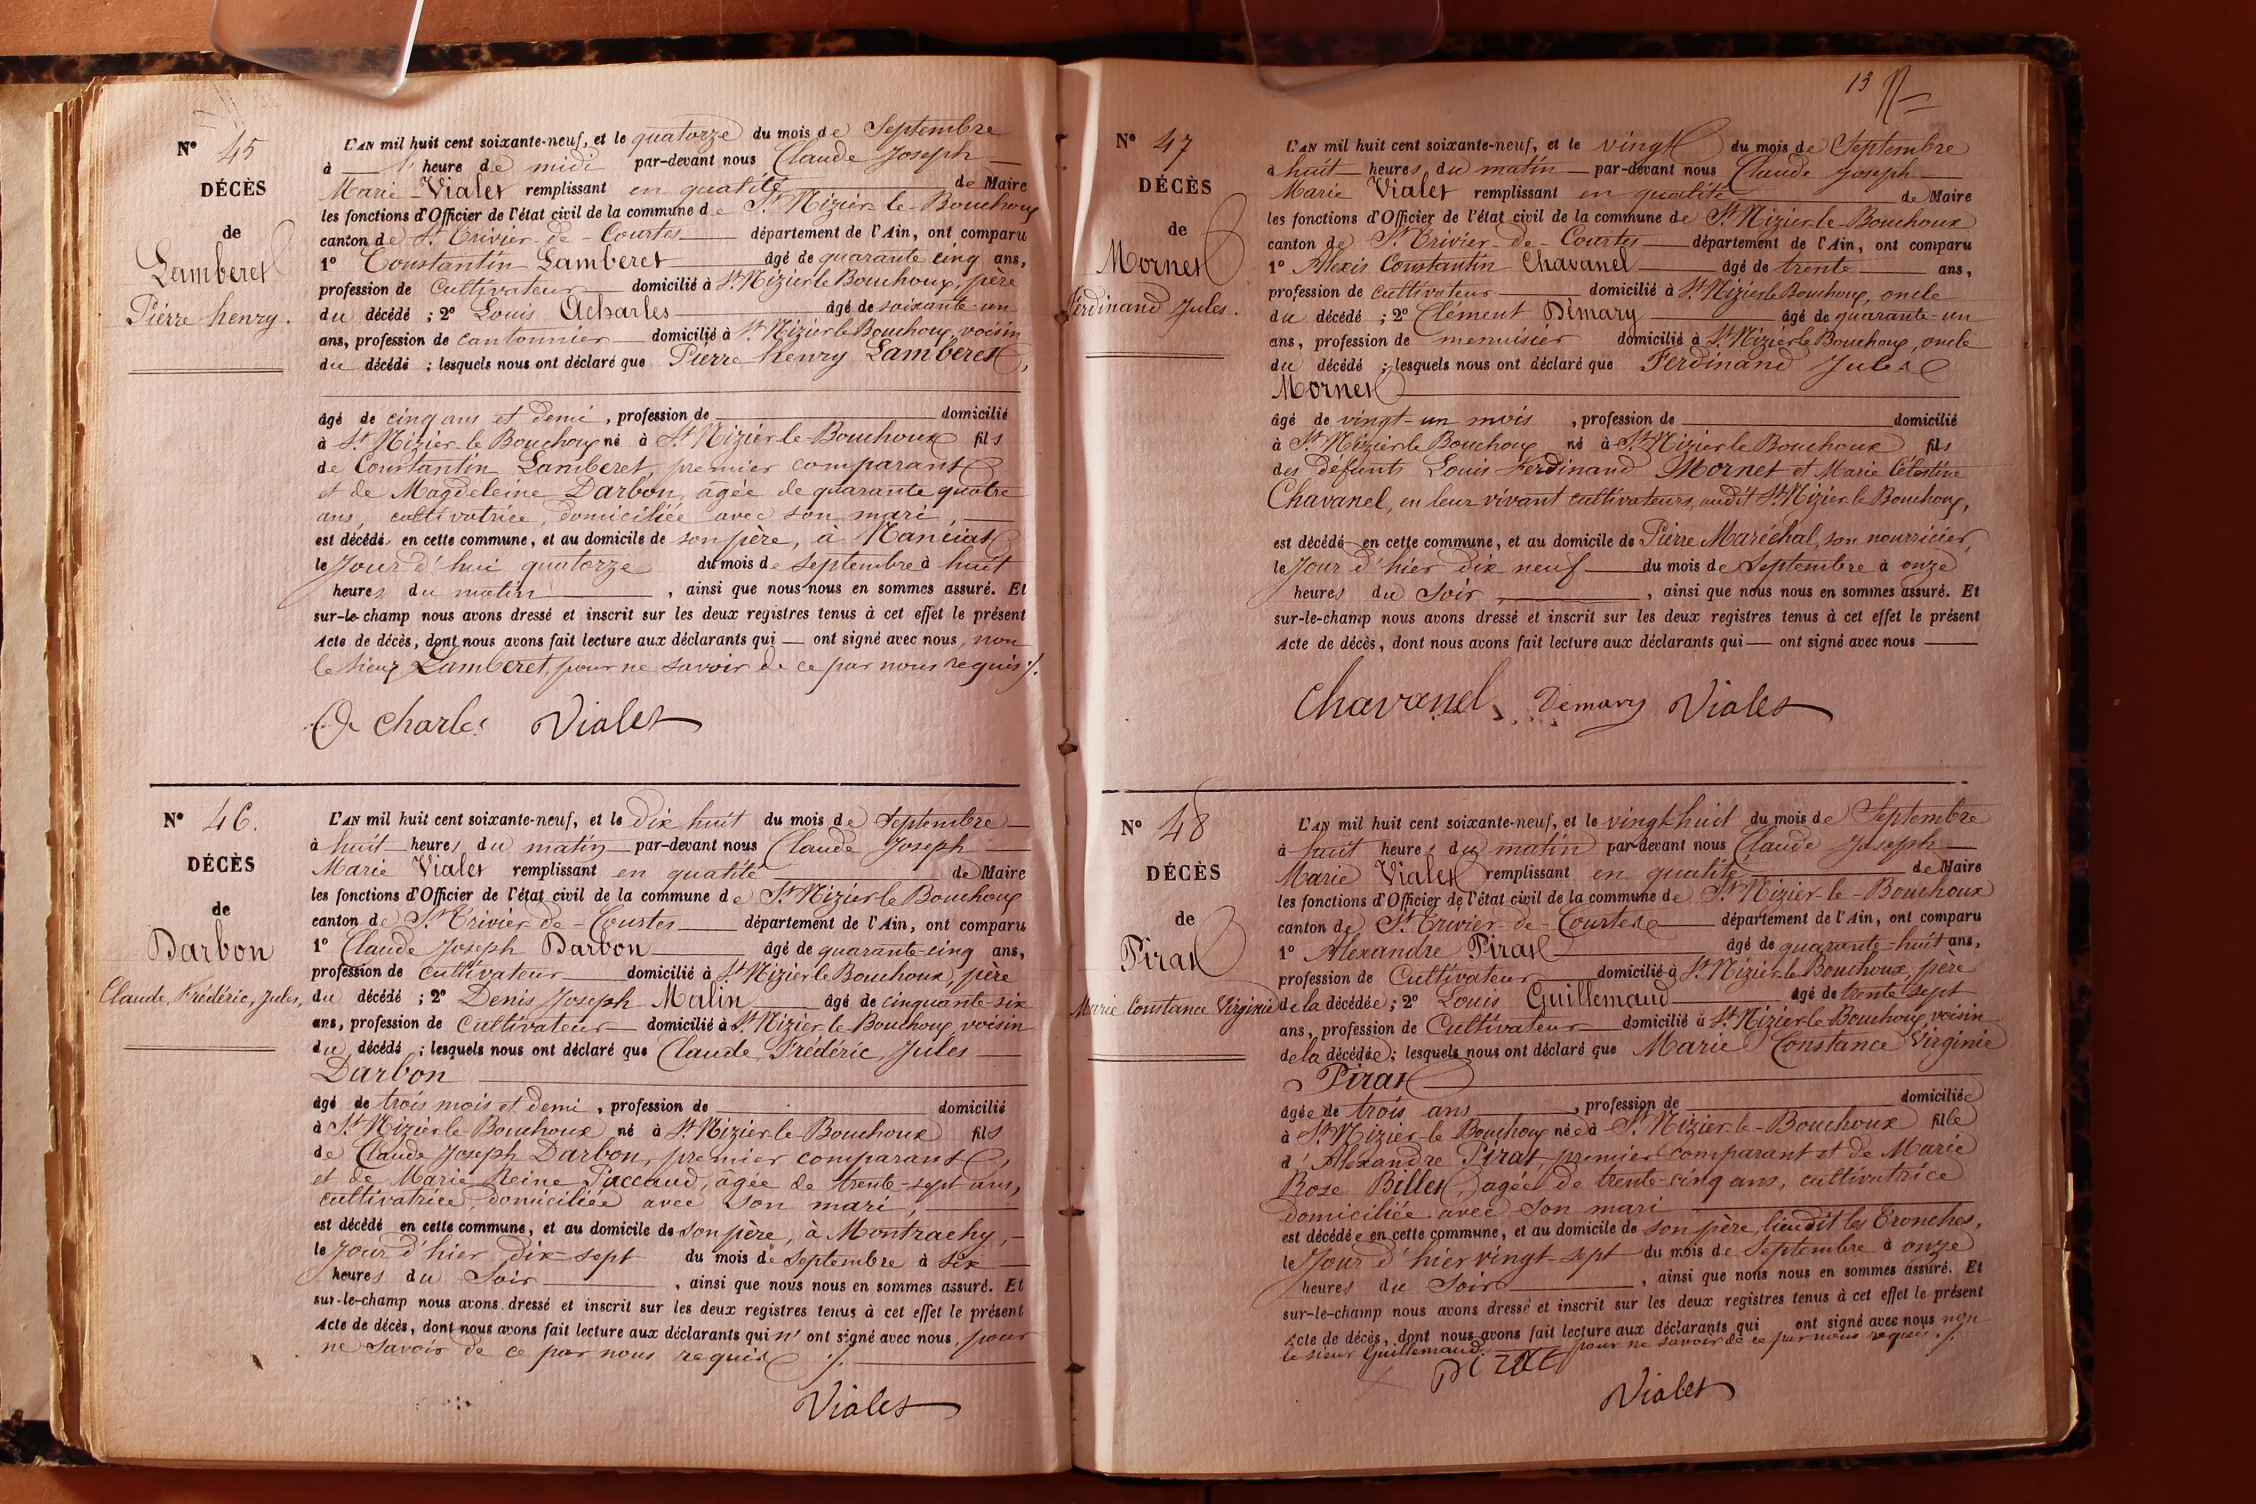 N° 45
DÉCÈS
de
Lamberet
Pierre henry.
L'AN mil huit cent soixante-neuf, et le quatorze du mois de Septembre
à l'heure de midi par-devant nous Claude Joseph
Marie Vialet remplissant en qualité de Maire
les fonctions d'Officier de l'état civil de la commune de St Nizier-le-Bouchoux
canton de St Trivier-de-Courtes département de l'Ain, ont comparu
1° Constantin Lamberet âgé de quarante cinq ans,
profession de Cultivateur domicilié à St Nizier le Bouchoux, père
du décédé ; 2° Louis Acharles âgé de soixante-un
ans, profession de cantonnier domicilié à St Nizier le Bouchoux, voisin
du décédé ; lesquels nous ont déclaré que Pierre henry Lamberet,
âgé de cinq ans et demi, profession de domicilié
à St Nizier-le Bouchoux né à St Nizier-le-Bouchoux fils
de Constantin Lamberet, premier comparant
et de Magdeleine Darbon, âgée de quarante quatre
ans, cultivatrice, domiciliée avec son mari,
est décédé en cette commune, et au domicile de son père, à Manciat
le Jour d'hui quatorze du mois de Septembre à huit
heures du matin, ainsi que nous nous en sommes assuré. Et
sur-le-champ nous avons dressé et inscrit sur les deux registres tenus à cet effet le présent
Acte de décès, dont nous avons fait lecture aux déclarants qui ont signé avec nous, non
le sieur Lamberet, pour ne savoir de ce par nous requis ./.
Acharles Vialet
N° 46.
DÉCÈS
de
Darbon
Claude, Frédéric, Jules,
L'AN mil huit cent soixante-neuf, et le Dix huit du mois de Septembre
à huit heures du matin par-devant nous Claude Joseph
Marie Vialet remplissant en qualité de Maire
les fonctions d'Officier de l'état civil de la commune de St Nizier le Bouchoux
canton de St Trivier-de-Courtes département de l'Ain, ont comparu
1° Claude Joseph Darbon âgé de quarante-cinq ans,
profession de cultivateur domicilié à St Nizier le Bouchoux, père
du décédé ; 2° Denis Joseph Malin âgé de cinquante-six
ans, profession de Cultivateur domicilié à St Nizier le Bouchoux, voisin
du décédé ; lesquels nous ont déclaré que Claude, Frédéric, Jules
Darbon
âgé de trois mois et demi, profession de domicilié
à St Nizier-le Bouchoux né à St Nizier-le-Bouchoux fils
de Claude Joseph Darbon, premier comparant,
et de Marie Reine Paccaud, âgée de trente-sept ans,
cultivatrice, domiciliée avec son mari,
est décédé en cette commune, et au domicile de son père, à Montrachy,
le Jour d'hier dix-sept du mois de Septembre à six
heures du Soir, ainsi que nous nous en sommes assuré. Et
sur-le-champ nous avons dressé et inscrit sur les deux registres tenus à cet effet le présent
Acte de décès, dont nous avons fait lecture aux déclarants qui n' ont signé avec nous, pour
ne savoir de ce par nous requis ./.
Vialet
13
N° 47
DÉCÈS
de
Mornet
Ferdinand Jules.
L'AN mil huit cent soixante-neuf, et le vingt du mois de Septembre
à huit heures du matin par-devant nous Claude Joseph
Marie Vialet remplissant en qualité de Maire
les fonctions d'Officier de l'état civil de la commune de St Nizier-le-Bouchoux
canton de St Trivier-de-Courtes département de l'Ain, ont comparu
1° Alexis Constantin Chavanel âgé de trente ans,
profession de cultivateur domicilié à St Nizier le Bouchoux, oncle
du décédé ; 2° Clément Démary âgé de quarante-un
ans, profession de menuisier domicilié à St Nizier le Bouchoux, oncle
du décédé ; lesquels nous ont déclaré que Ferdinand Jules
Mornet
âgé de vingt-un mois, profession de domicilié
à St Nizier le Bouchoux né à St Nizier le Bouchoux fils
des défunts Louis Ferdinand Mornet et Marie Célestine
Chavanel, en leur vivant cultivateurs, audit St Nizier le Bouchoux,
est décédé en cette commune, et au domicile de Pierre Maréchal, son nourricier,
le Jour d'hier dix neuf du mois de Septembre à onze
heures du Soir, ainsi que nous nous en sommes assuré. Et
sur-le-champ nous avons dressé et inscrit sur les deux registres tenus à cet effet le présent
Acte de décès, dont nous avons fait lecture aux déclarants qui ont signé avec nous
Chavanel Démary Vialet
N° 48
DÉCÈS
de
Pirat
Marie Constance Virginie
L'AN mil huit cent soixante-neuf, et le vingt-huit du mois de Septembre
à huit heures du matin par-devant nous Claude Joseph
Marie Vialet remplissant en qualité de Maire
les fonctions d'Officier de l'état civil de la commune de St Nizier-le-Bouchoux
canton de St Trivier-de-Courtes département de l'Ain, ont comparu
1° Alexandre Pirat âgé de quarante-huit ans,
profession de Cultivateur domicilié à St Nizier-le Bouchoux, père
de la décédée ; 2° Louis Guillemaud âgé de trente sept
ans, profession de Cultivateur domicilié à St Nizier-le Bouchoux, voisin
de la décédée ; lesquels nous ont déclaré que Marie Constance Virginie
Pirat
âgée de trois ans, profession de domiciliée
à St Nizier-le Bouchoux née à St Nizier-le-Bouchoux fille
d'Alexandre Pirat, premier comparant et de Marie
Rose Billet, âgée de trente-cinq ans, cultivatrice
domiciliée avec son mari
est décédée en cette commune, et au domicile de son père, lieu dit les Tronches,
le Jour d'hier vingt-sept du mois de Septembre à onze
heures du Soir, ainsi que nous nous en sommes assuré. Et
sur-le-champ nous avons dressé et inscrit sur les deux registres tenus à cet effet le présent
Acte de décès, dont nous avons fait lecture aux déclarants qui ont signé avec nous non
le sieur Guillemaud pour ne savoir de ce par nous requis ./.
Pirat
Vialet